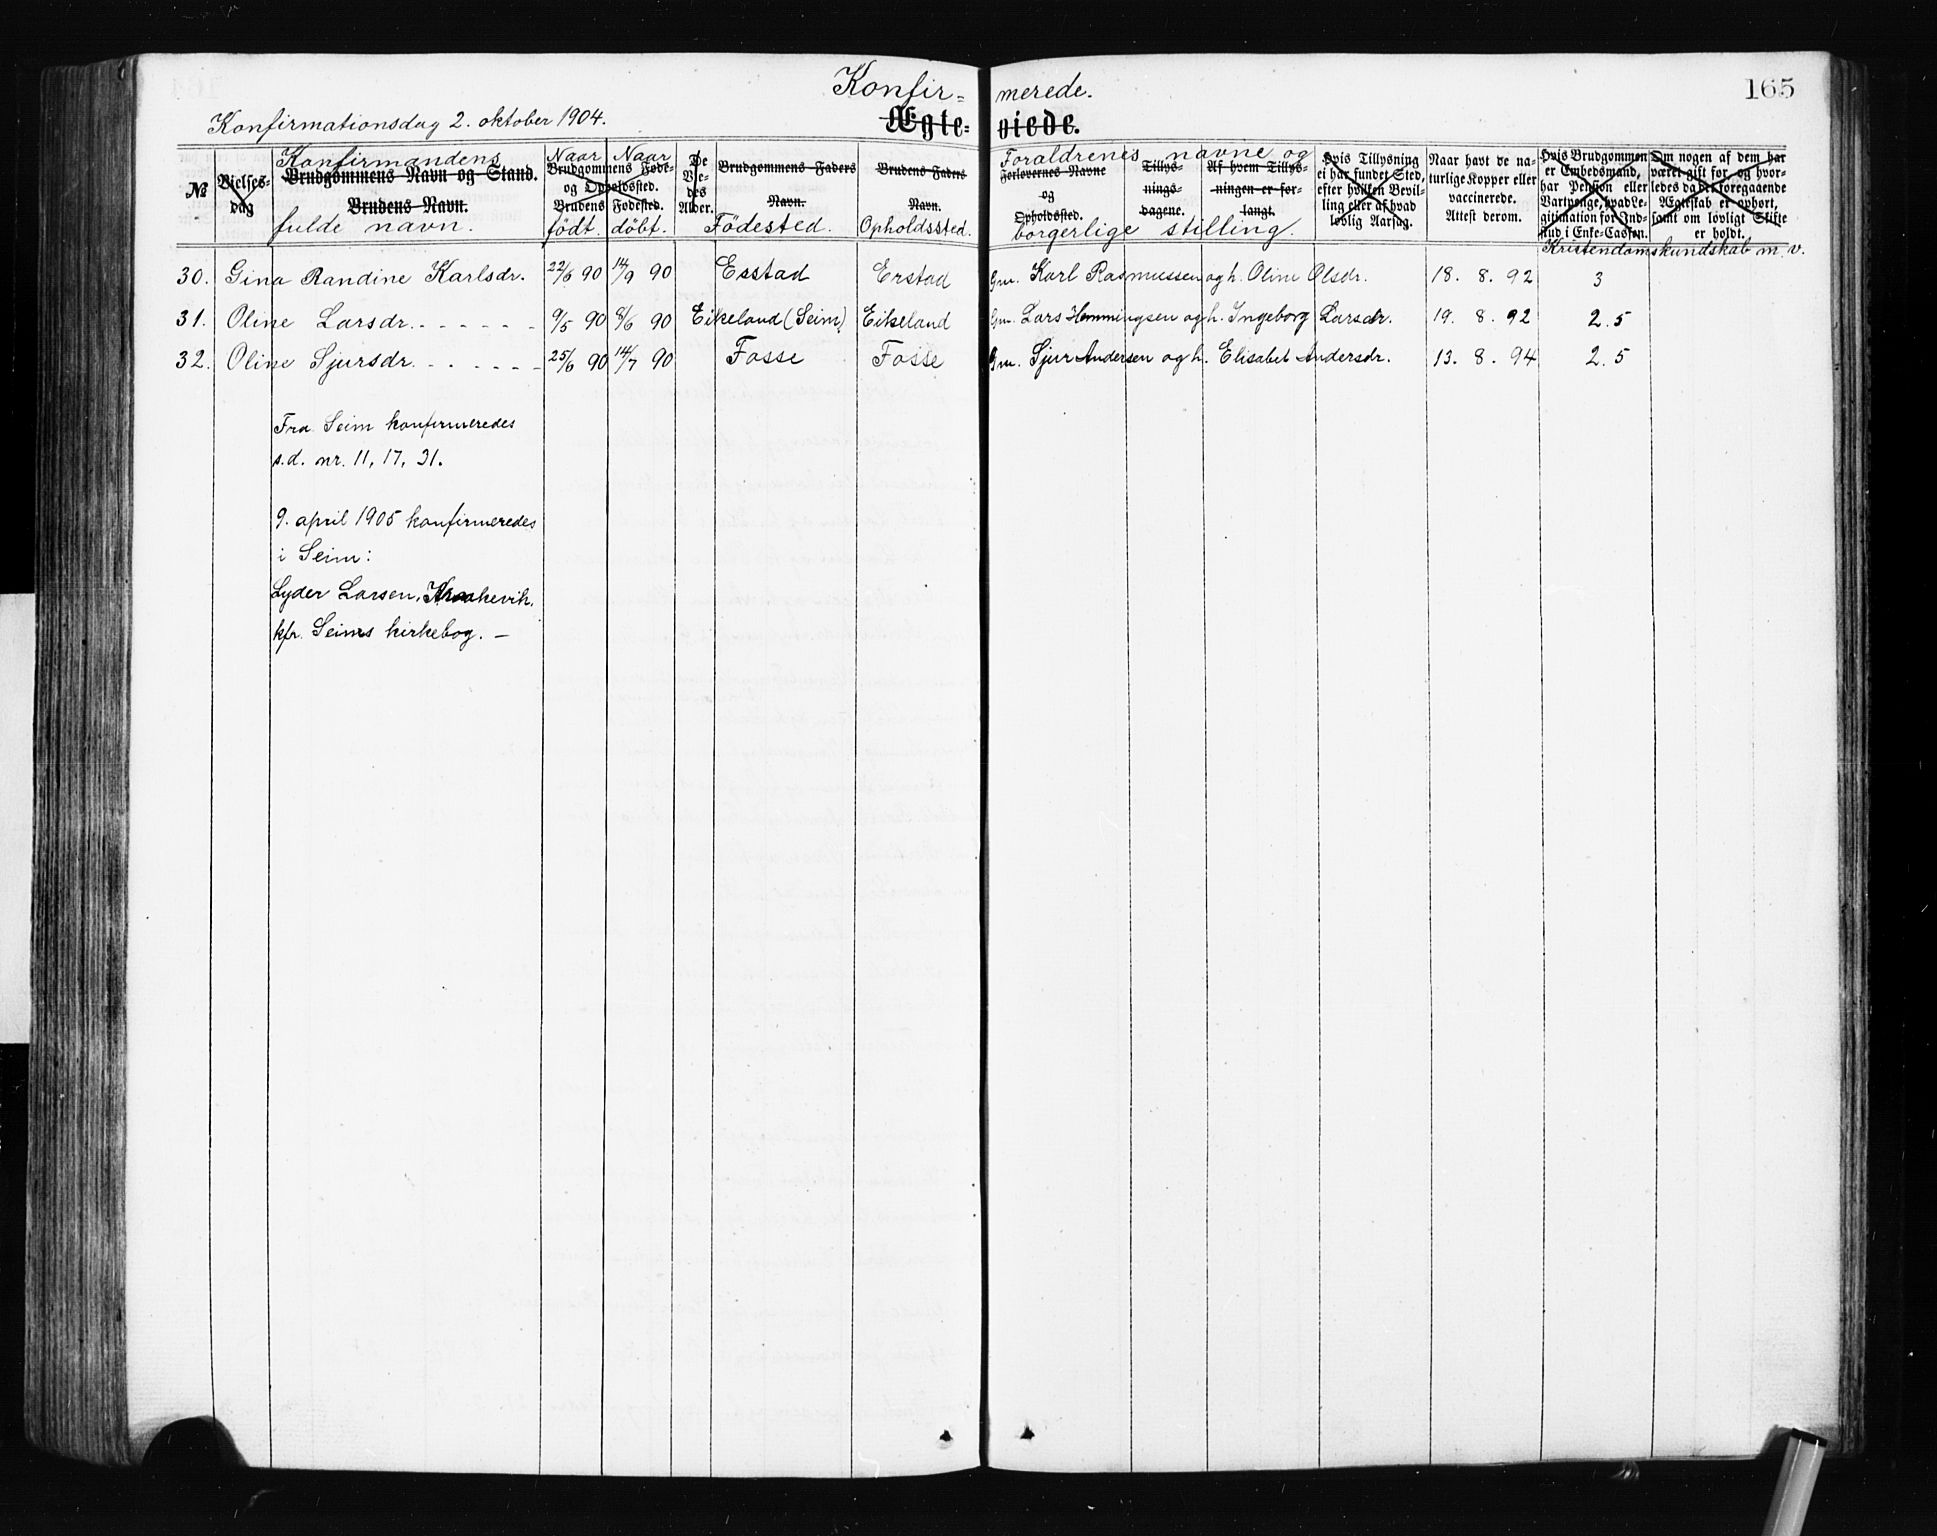 Konfir= merede. 165
Konfirmationsdag 2. oktober 1904. Ægte= viede.
№
Vielses-
dag
Konfirmandens
Brudgommens Navn og Stand.
Brudens Navn.
fulde navn.
Naar Naar
Brudgommens Føde-
og Opholdssted.
Brudens Fødested.
født. döbt.
De
Vie-
des
Alder.
Brudgommens Faders
Navn.
Födested.
Brudens Faders
Navn.
Opholdssted.
Foraldrenes navne og
Forlovernes Navne
og
Opholdssted.
Tillys-
nings-
dagene.
Af hvem Tillys-
ningen er for-
langt.
borgerlige stilling.
Hvis Tillysning
ei har fundet Sted,
efter hvilken Bevil-
ling eller af hvad
lovlig Aarsag.
Naar havt de na-
turlige Kopper eller
vaccinerede.
Attest derom.
Hvis Brudgommen
er Embedsmand,
har Pension eller
Vartpenge, hvad Le-
gitimation for Ind-
skud i Enke-Cassen.
Om nogen af dem har
været gift før, og hvor-
ledes da det foregaaende
Ægteskab er ophørt,
samt om lovligt Skifte
er holdt.
Kristendomskundskab m. v.
30. Gina Randine Karlsdr. 22/6 90 14/9 90 Esstad Erstad Gm. Karl Rasmussen og h. Oline Olsdr. 18. 8. 92 3
31. Oline Larsdr. - - - - - - 9/5 90 8/6 90 Eikeland (Seim) Eikeland Gm. Lars Hemmingsen og h. Ingeborg Larsdr. 19. 8. 92 2.5
32. Oline Sjursdr. - - - - - - 25/6 90 14/7 90 Fosse Fosse Gm. Sjur Andersen og h. Elisabet Andersdr. 13. 8. 94 2.5
Fra Seim konfirmeredes
s.d. nr. 11, 17, 31.
9. april 1905 konfirmeredes
i Seim:
Lyder Larsen, Kraakevik,
kfr. Seims kirkebog. —